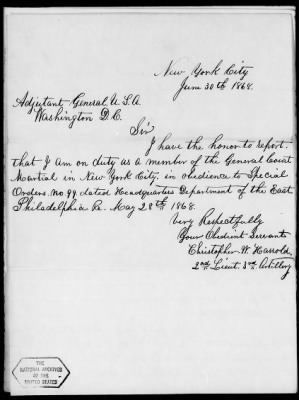 New York City
June 30th 1868.
Adjutant General U.S.A.
Washington D.C.
Sir
I have the honor to report.
that I am on duty as a member of the General Court
Martial in New York City, in obedience to Special
Orders. No 99 dated Headquarters Department of the East
Philadelphia Pa. May 28th 1868.
Very Respectfully
Your Obedient Servant
Christopher W. Harrold
2nd Lieut. 3rd Artillery
THE
NATIONAL ARCHIVES
OF THE
UNITED STATES